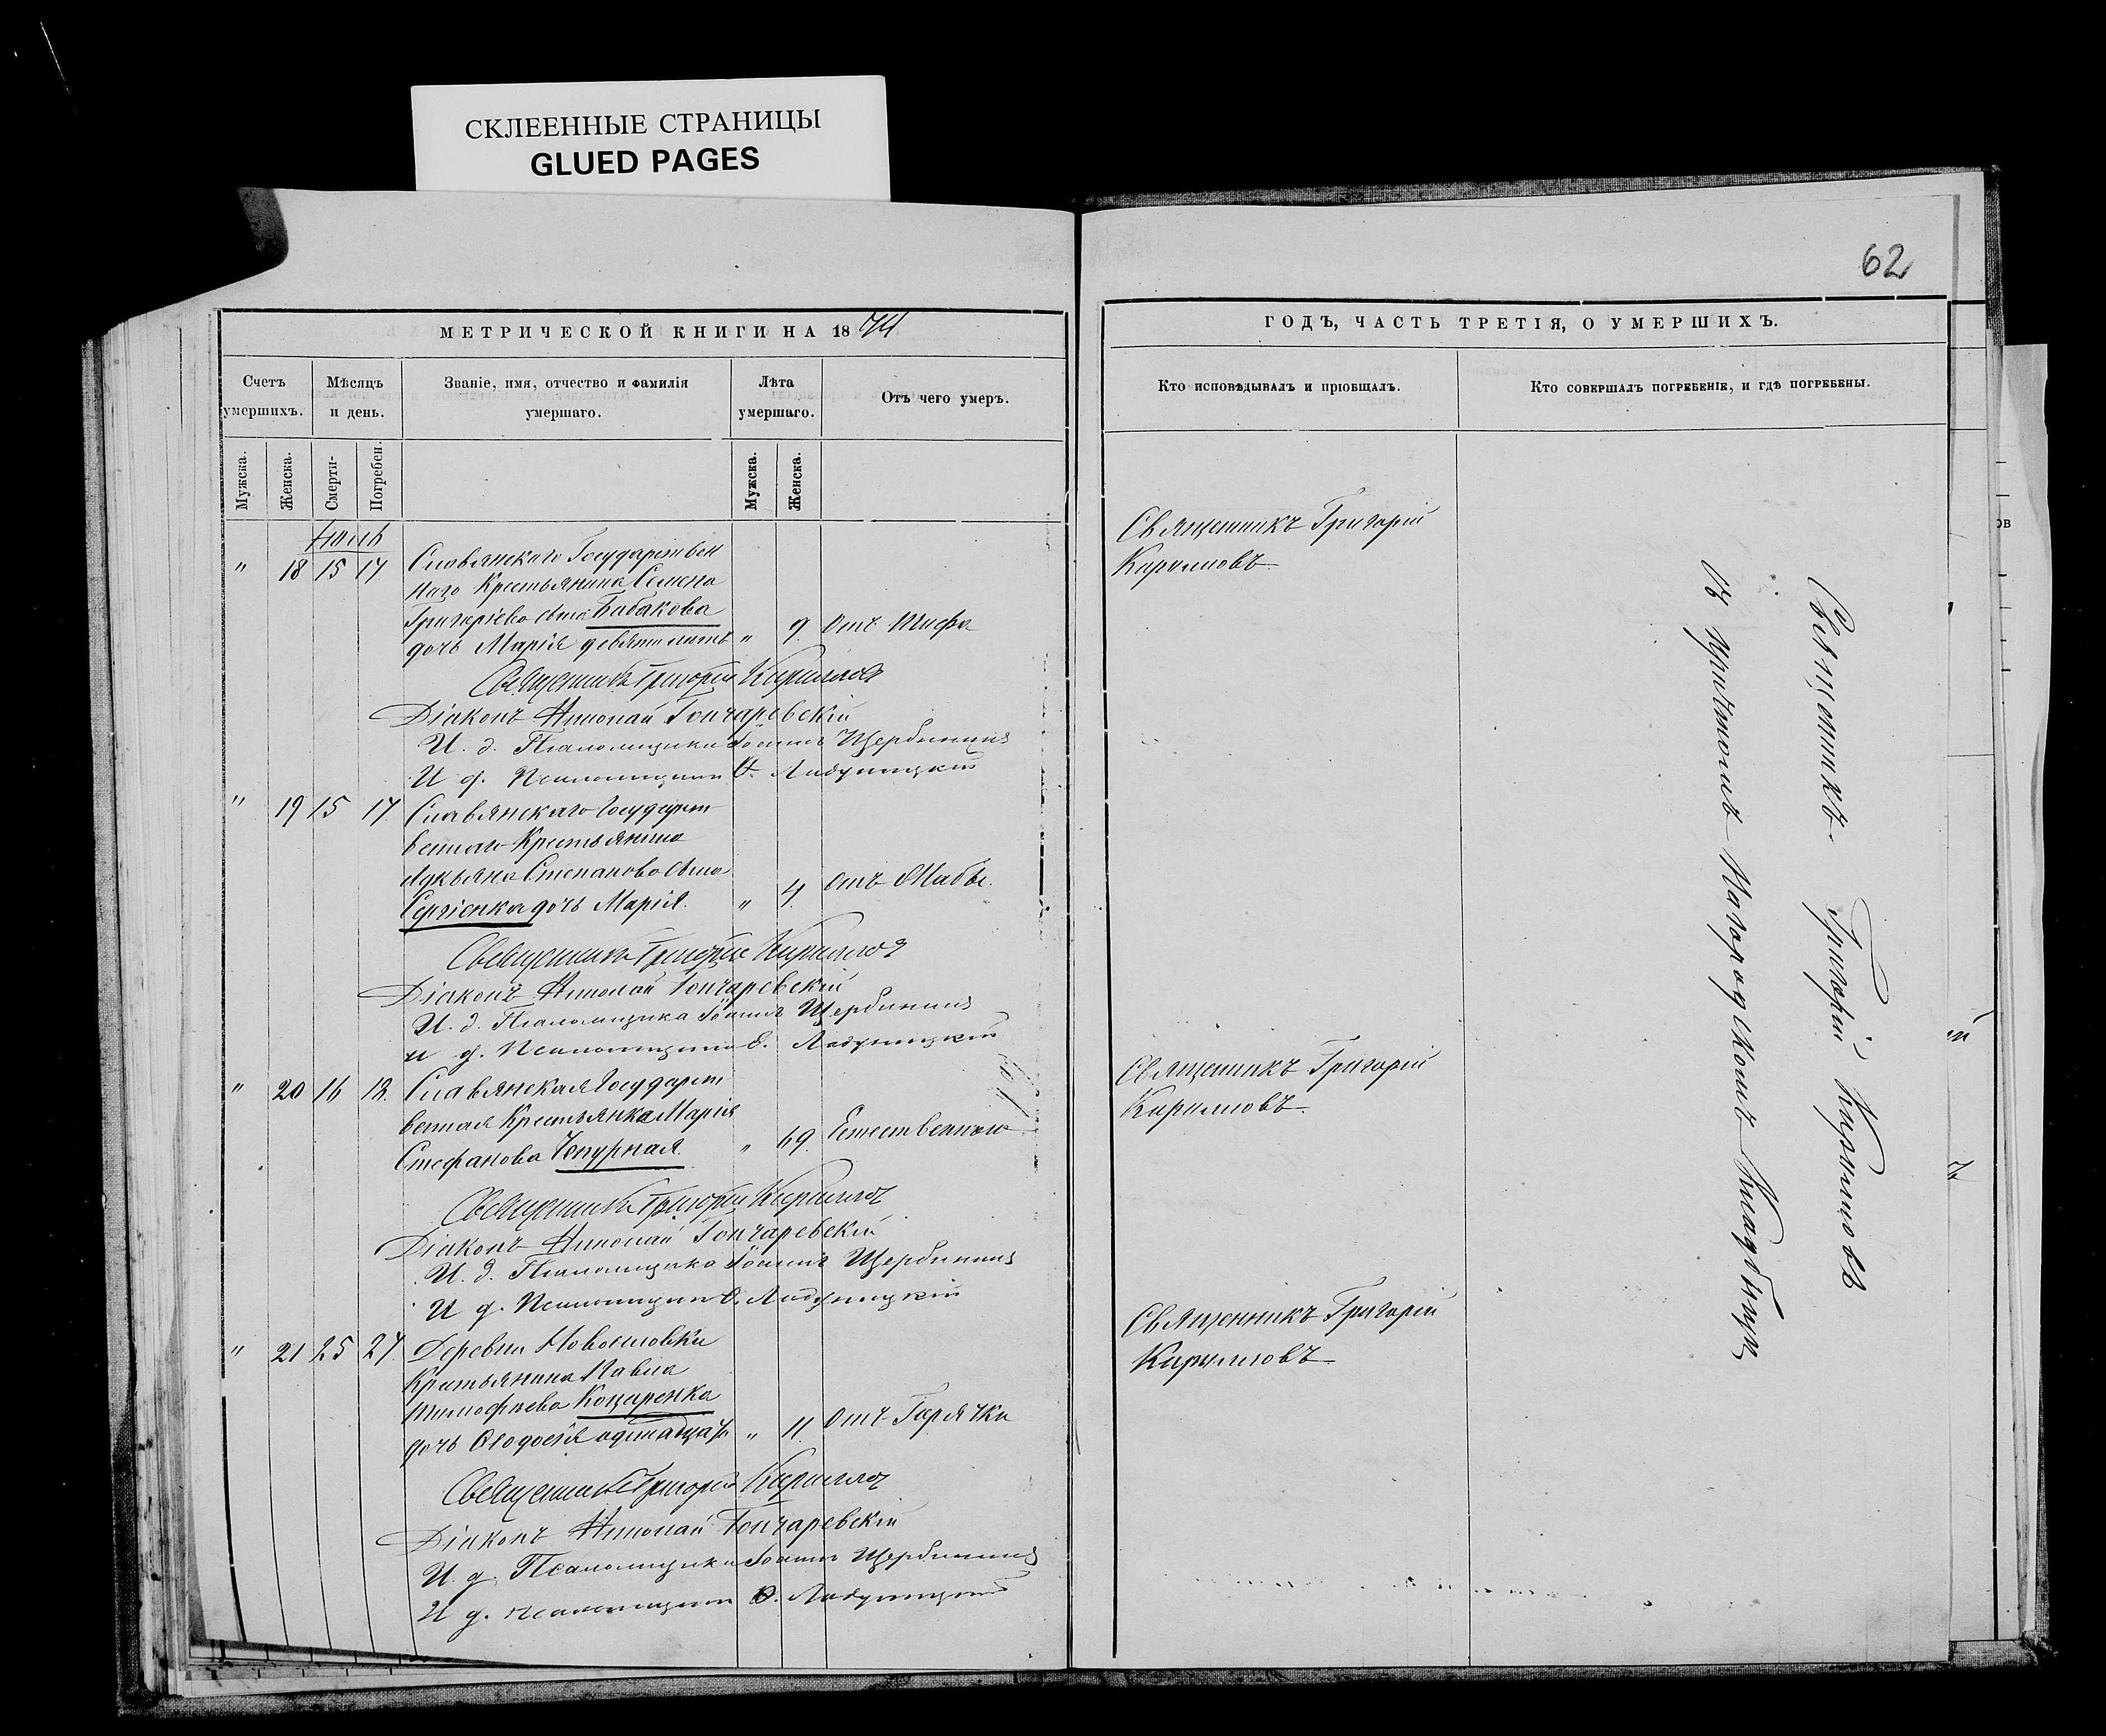 СКЛЕЕННЫЕ СТРАНИЦЫ
GLUED PAGES
МЕТРИЧЕСКОЙ КНИГИ НА 1874
Счетъ умершихъ.
Мѣсяцъ и день.
Званіе, имя, отчество и фамилія умершаго.
Лѣта умершаго.
Отъ чего умеръ.
Мужска.
Женска.
Смерти-
Погребен.
Мужска.
Женска.
" 18 15 17 Славянскаго Государствен
наго Крестьянина Семена
Григоріева сына Бабакова
дочь Марія девяти лѣтъ " 9 Отъ Тифа
Священникъ Григорій Кирилловъ
Діаконъ Николай Гончаревскій
И. д. Псаломщика Іоаннъ Щербининъ
И д. Псаломщика Ладушцкій
" 19 15 17 Славянскаго Государст
веннаго Крестьянина
Лукьяна Степанова сына
Сергіенка дочь Марія. " 4 отъ Жабы.
Священникъ Григорій Кирилловъ
Діаконъ Николай Гончаревскій
И. д. Псаломщика Іоаннъ Щербининъ
и д. Псаломщика
" 20 16 18. Славянская Государст
венная Крестьянка Марія
Стефанова Чепурная. " 69. Естественною
Священникъ Григорій Кирилловъ
Діаконъ Николай Гончаревскій
И. д. Псаломщика Іоаннъ Щербининъ
И д. Псаломщика
" 21 25 27. Деревни Новоселовки
Крестьянина Павла
Тимофеева Коцаренка
дочь Ѳеодосія одинадцати " 11. Отъ Горячки
Священникъ Григорій Кирилловъ
Діаконъ Николай Гончаревскій
И. д. Псаломщика Іоаннъ Щербининъ
И д. псаломщика
62
ГОДЪ, ЧАСТЬ ТРЕТІЯ, О УМЕРШИХЪ.
Кто исповѣдывалъ и пріобщалъ.
Кто совершалъ погребеніе, и гдѣ погребены.
Священникъ Григорій
Кирилловъ
Священникъ Григорій
Кирилловъ
Священникъ Григорій
Кирилловъ
Священникъ Григорій Кирилловъ
на Кладбищѣ